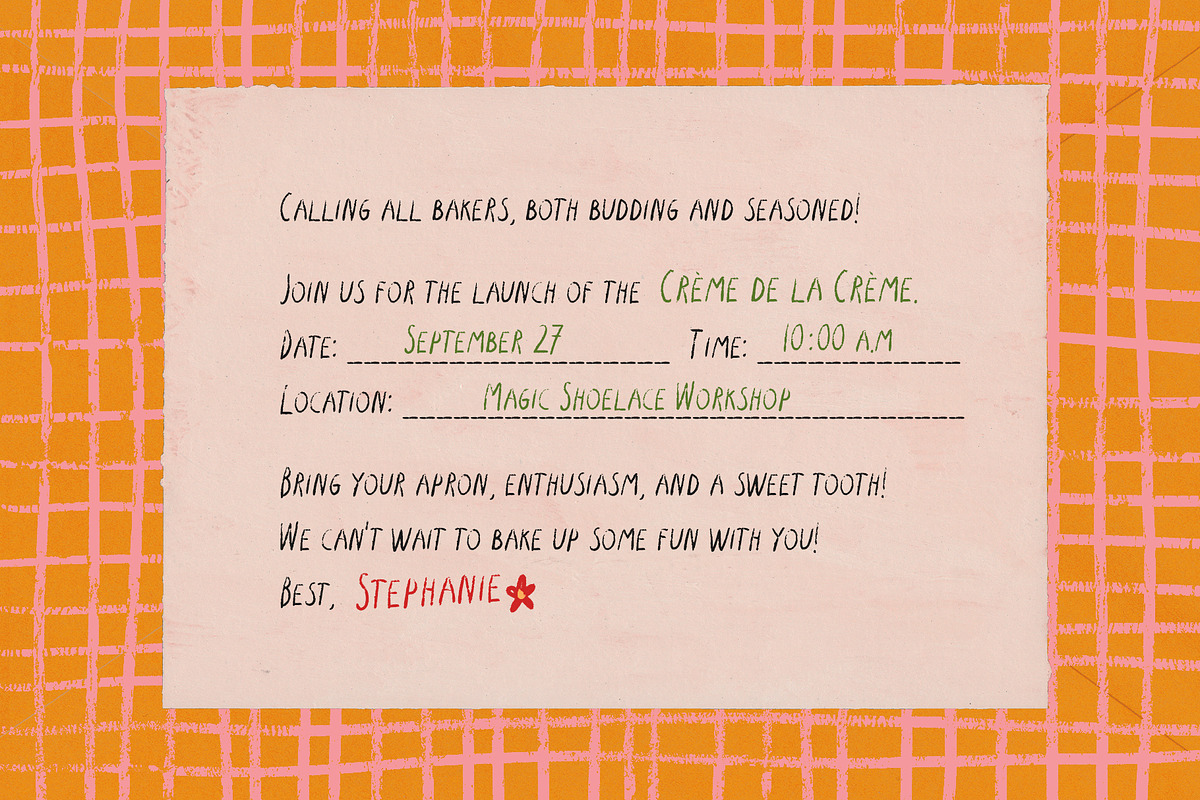 CALLING ALL BAKERS, BOTH BUDDING AND SEASONED!
JOIN US FOR THE LAUNCH OF THE CRÈME DE LA CRÈME.
DATE: SEPTEMBER 27 TIME: 10:00 A.M
LOCATION: MAGIC SHOELACE WORKSHOP
BRING YOUR APRON, ENTHUSIASM, AND A SWEET TOOTH!
WE CAN'T WAIT TO BAKE UP SOME FUN WITH YOU!
BEST, STEPHANIE